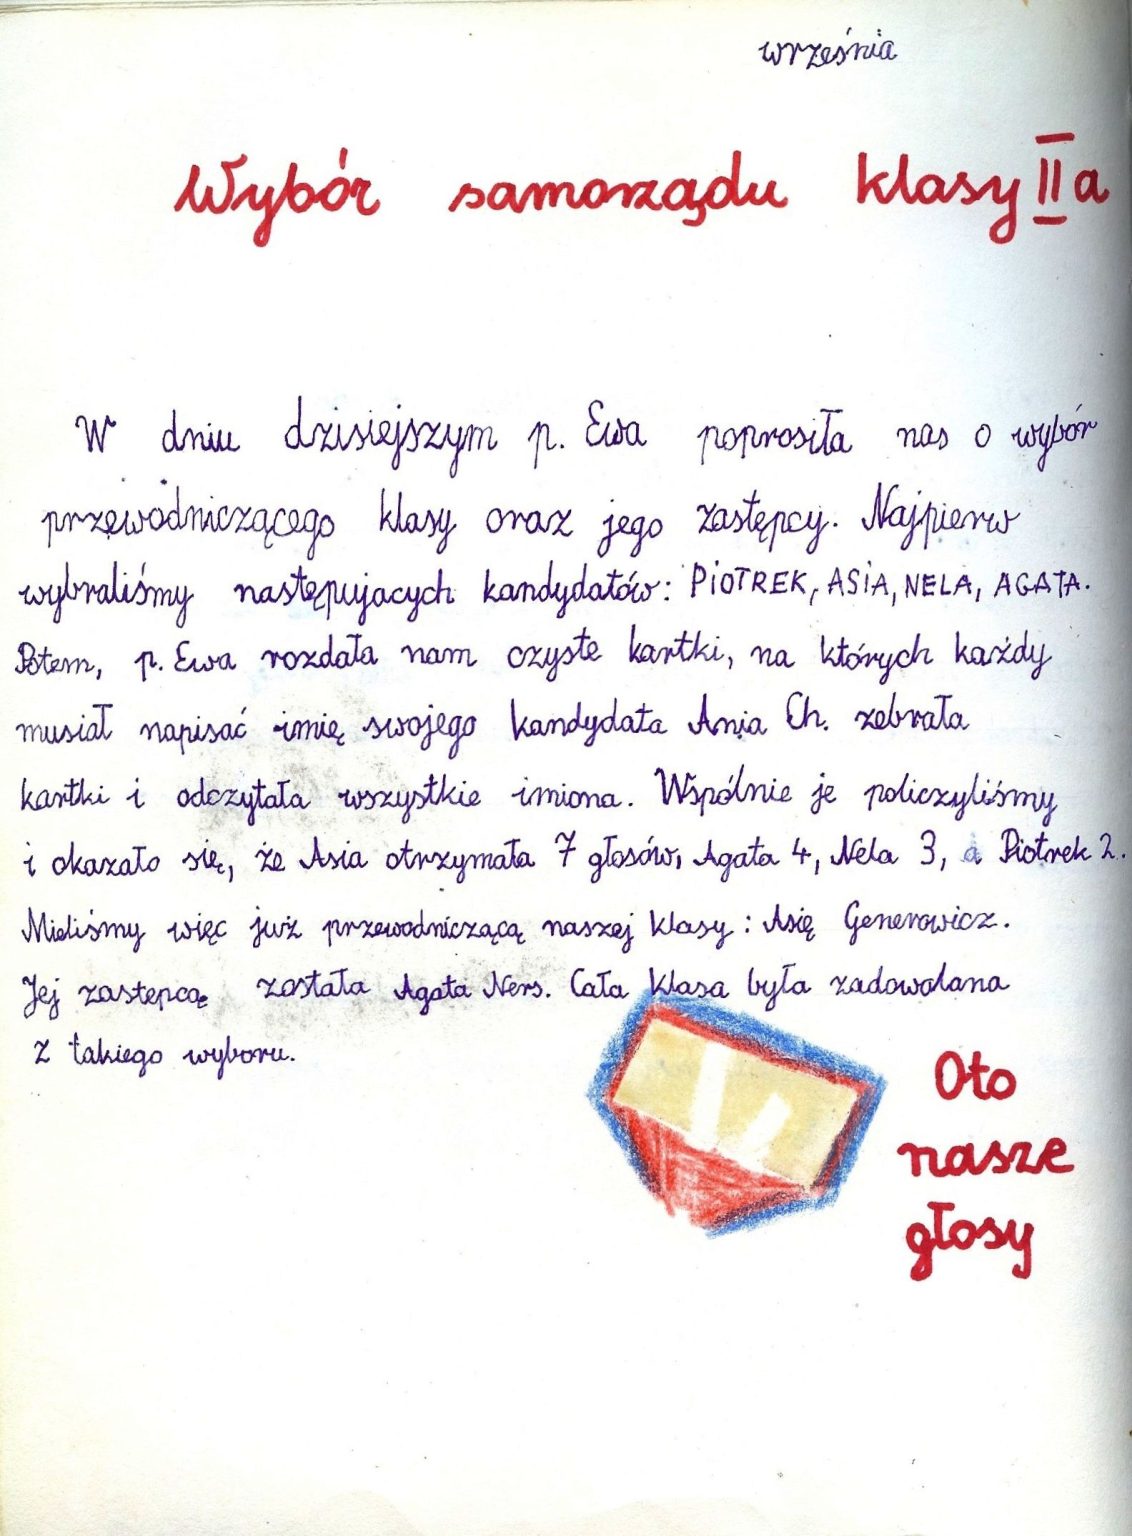 września
Wybór samorządu klasy II a
W dniu dzisiejszym p. Ewa poprosiła nas o wybór
przewodniczącego klasy oraz jego zastępcy. Najpierw
wybraliśmy następujacych kandydatów: PIOTREK, ASIA, NELA, AGATA.
Potem, p. Ewa rozdała nam czyste kartki, na których każdy
musiał napisać imię swojego kandydata Ania Ch. zebrała
kartki i odczytała wszystkie imiona. Wspólnie je policzyliśmy
i okazało się, że Asia otrzymała 7 głosów, Agata 4, Nela 3, a Piotrek 2.
Mieliśmy więc już przewodniczącą naszej klasy: Asię Generowicz.
Jej zastepcą została Agata Ners. Cała klasa była zadowolana
z takiego wyboru.
Oto
nasze
głosy